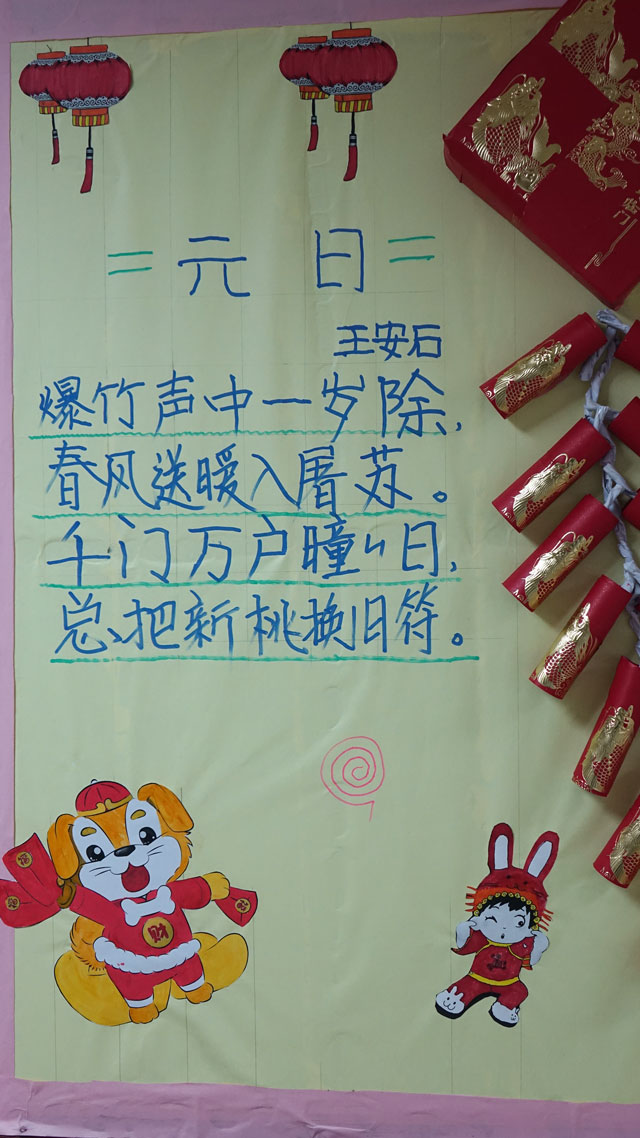 =元日=
王安石
爆竹声中一岁除，
春风送暖入屠苏。
千门万户瞳々日，
总把新桃换旧符。
财